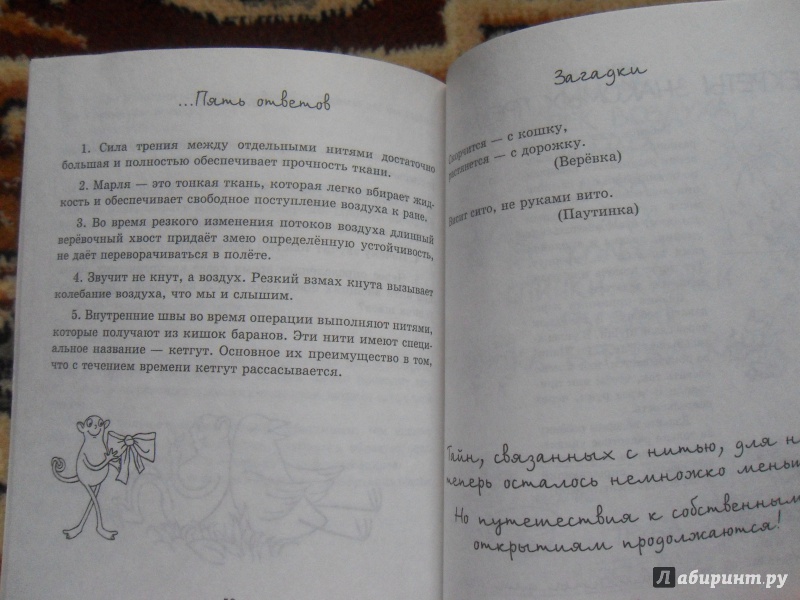 ...Пять ответов
1. Сила трения между отдельными нитями достаточно
большая и полностью обеспечивает прочность ткани.
2. Марля — это тонкая ткань, которая легко вбирает жид-
кость и обеспечивает свободное поступление воздуха к ране.
3. Во время резкого изменения потоков воздуха длинный
верёвочный хвост придаёт змею определённую устойчивость,
не даёт переворачиваться в полёте.
4. Звучит не кнут, а воздух. Резкий взмах кнута вызывает
колебание воздуха, что мы и слышим.
5. Внутренние швы во время операции выполняют нитями,
которые получают из кишок баранов. Эти нити имеют специ-
альное название — кетгут. Основное их преимущество в том,
что с течением времени кетгут рассасывается.
Загадки
— с кошку,
— с дорожку.
(Верёвка)
сито, не руками вито.
(Паутинка)
Тайн, связанных с нитью, для
теперь осталось немножко
Но путешествия к собственным
открытиям продолжаются!
Лабиринт.ру